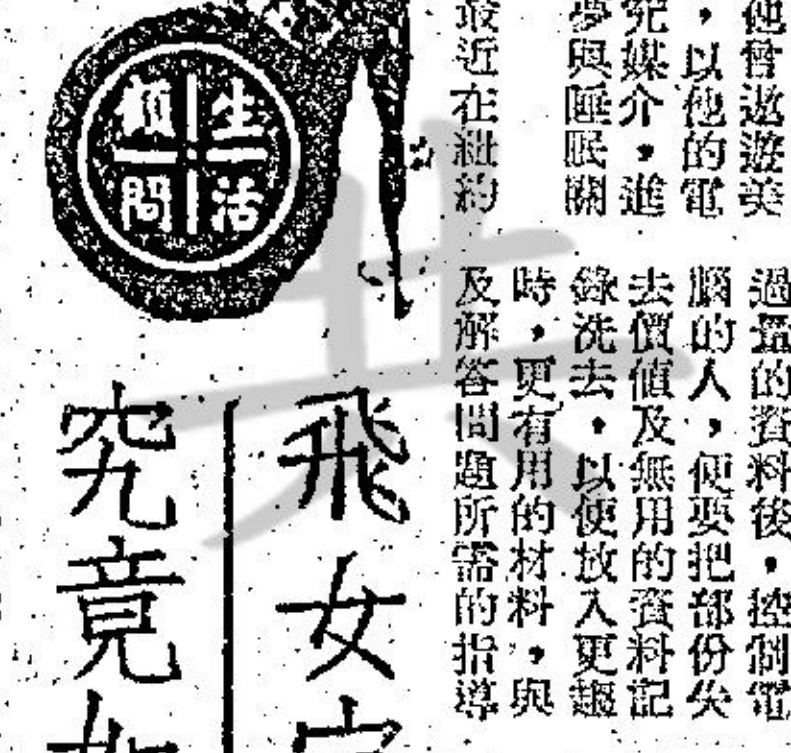 他曾遨遊美
，以他的電
究媒介，進
夢與睡眠關
最近在紐約
過量的資料後，控制電
腦的人，便要把部份失
去價值及無用的資料記
錄洗去，以便放入更趨
時，更有用的材料，與
及解答問題所需的指導
生活
顧問
飛女
究竟